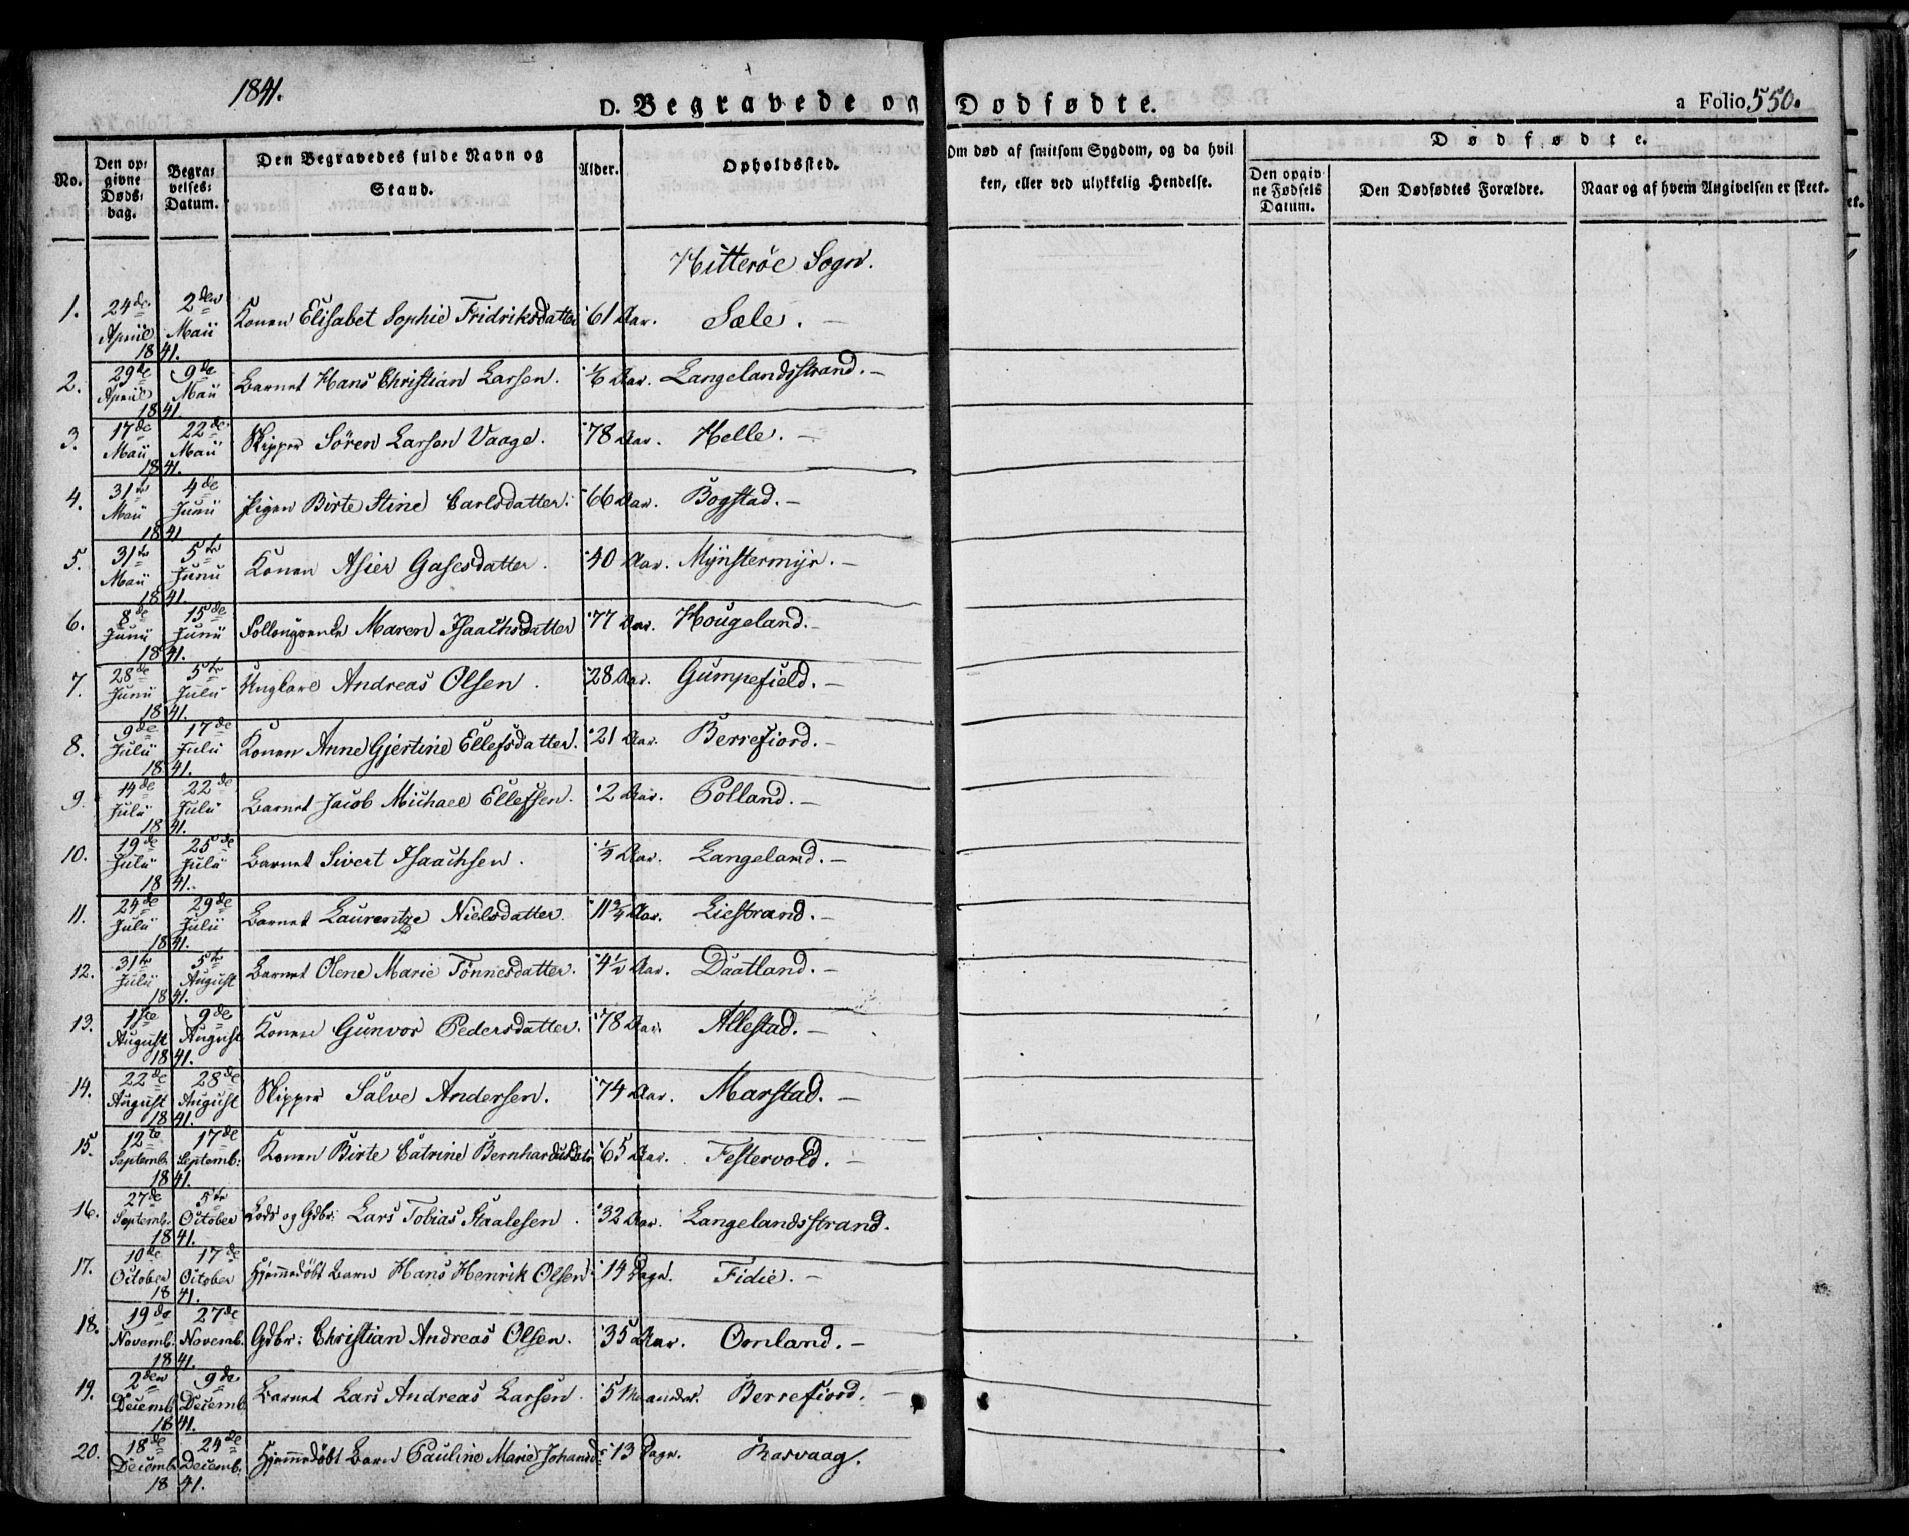 1841.
D. Begravede og Dødfødte.
a Folio 550.
No.
Den opgivne Døds-dag.
Begravelses-Datum.
Den Begravedes fulde Navn og Stand.
Alder.
Opholdssted.
Om død af smitsom Sygdom, og da hvilken, eller ved ulykkelig Hendelse.
Dødfødte.
Den opgivne Fødsels Datum.
Den Dødfødtes Forældre.
Naar og af hvem Angivelsen er skeet.
Hitterøe Sogn.
1. 24de April 2den Maii 1841. Konen Elisabet Sophie Fridriksdatter 61 Aar. Sæle. —
2. 29de April 9de Maii 1841. Barnet Hans Christian Larsen. 1/6 Aar. Langelandsstrand. —
3. 17de Maii 22de Maii 1841. Skipper Sören Larsen Vaage. 78 Aar. Helle. —
4. 31te Maii 4de Junii 1841. Pigen Birte Stine Carlsdatter. 66 Aar. Bogstad. —
5. 31te Maii 5te Junii 1841. Konen Asier Gasesdatter. 40 Aar. Mÿnstermÿr. —
6. 8de Junii 15de Junii 1841. Maren Isaachsdatter 77 Aar. Hougeland. —
7. 28de Junii 5te Julii 1841. Ungkarl Andreas Olsen. 28 Aar. Gumpefield. —
8. 9de Julii 17de Julii 1841. Konen Anne Gjertine Ellefsdatter. 21 Aar. Berrefiord. —
9. 14de Julii 22de Julii 1841. Barnet Jacob Michael Ellefsen. 2 Aar. Polland. —
10. 19de Julii 25de Julii 1841. Barnet Sivert Isaachsen. Aar. Langeland. —
11. 24de Julii 29de Julii 1841. Barnet Laurentze Nielsdatter. 11 3/4 Aar. Liestrand. —
12. 31te Julii 5te August 1841. Barnet Olene Marie Tönnesdatter. 4 1/2 Aar. Daatland. —
13. 1ste August 9de August 1841. Konen Gunvor Pedersdatter. 78 Aar. Allestad. —
14. 22de August 28de August 1841. Skipper Salve Andersen. 74 Aar. Marstad. —
15. 12te Septemb. 17de Septemb: 1841. Konen Birte Catrine Bernhardusdtr 65 Aar. Festervold. —
16. 27de Septemb. 5te October 1841. Lods og Gdbr: Lars Tobias Staalesen. 32 Aar. Langelandsstrand.
17. 10de October 17de October 1841. Hjemmedöbt Barn Hans Henrik Olsen. 14 Dage. Fidie. —
18. 19de Novemb. 27de Novemb. 1841. Gdbr: Christian Andreas Olsen. 35 Aar. Omland. —
19. 2den Decemb. 9de Decemb. 1841. Barnet Lars Andreas Larsen. 5 Maaneder. Berrefiord. —
20. 18de Decemb. 24de Decemb. 1841. Hjemmedöbt Barn Pauline Marie Johansd: 13 Dage. Rasvaag.